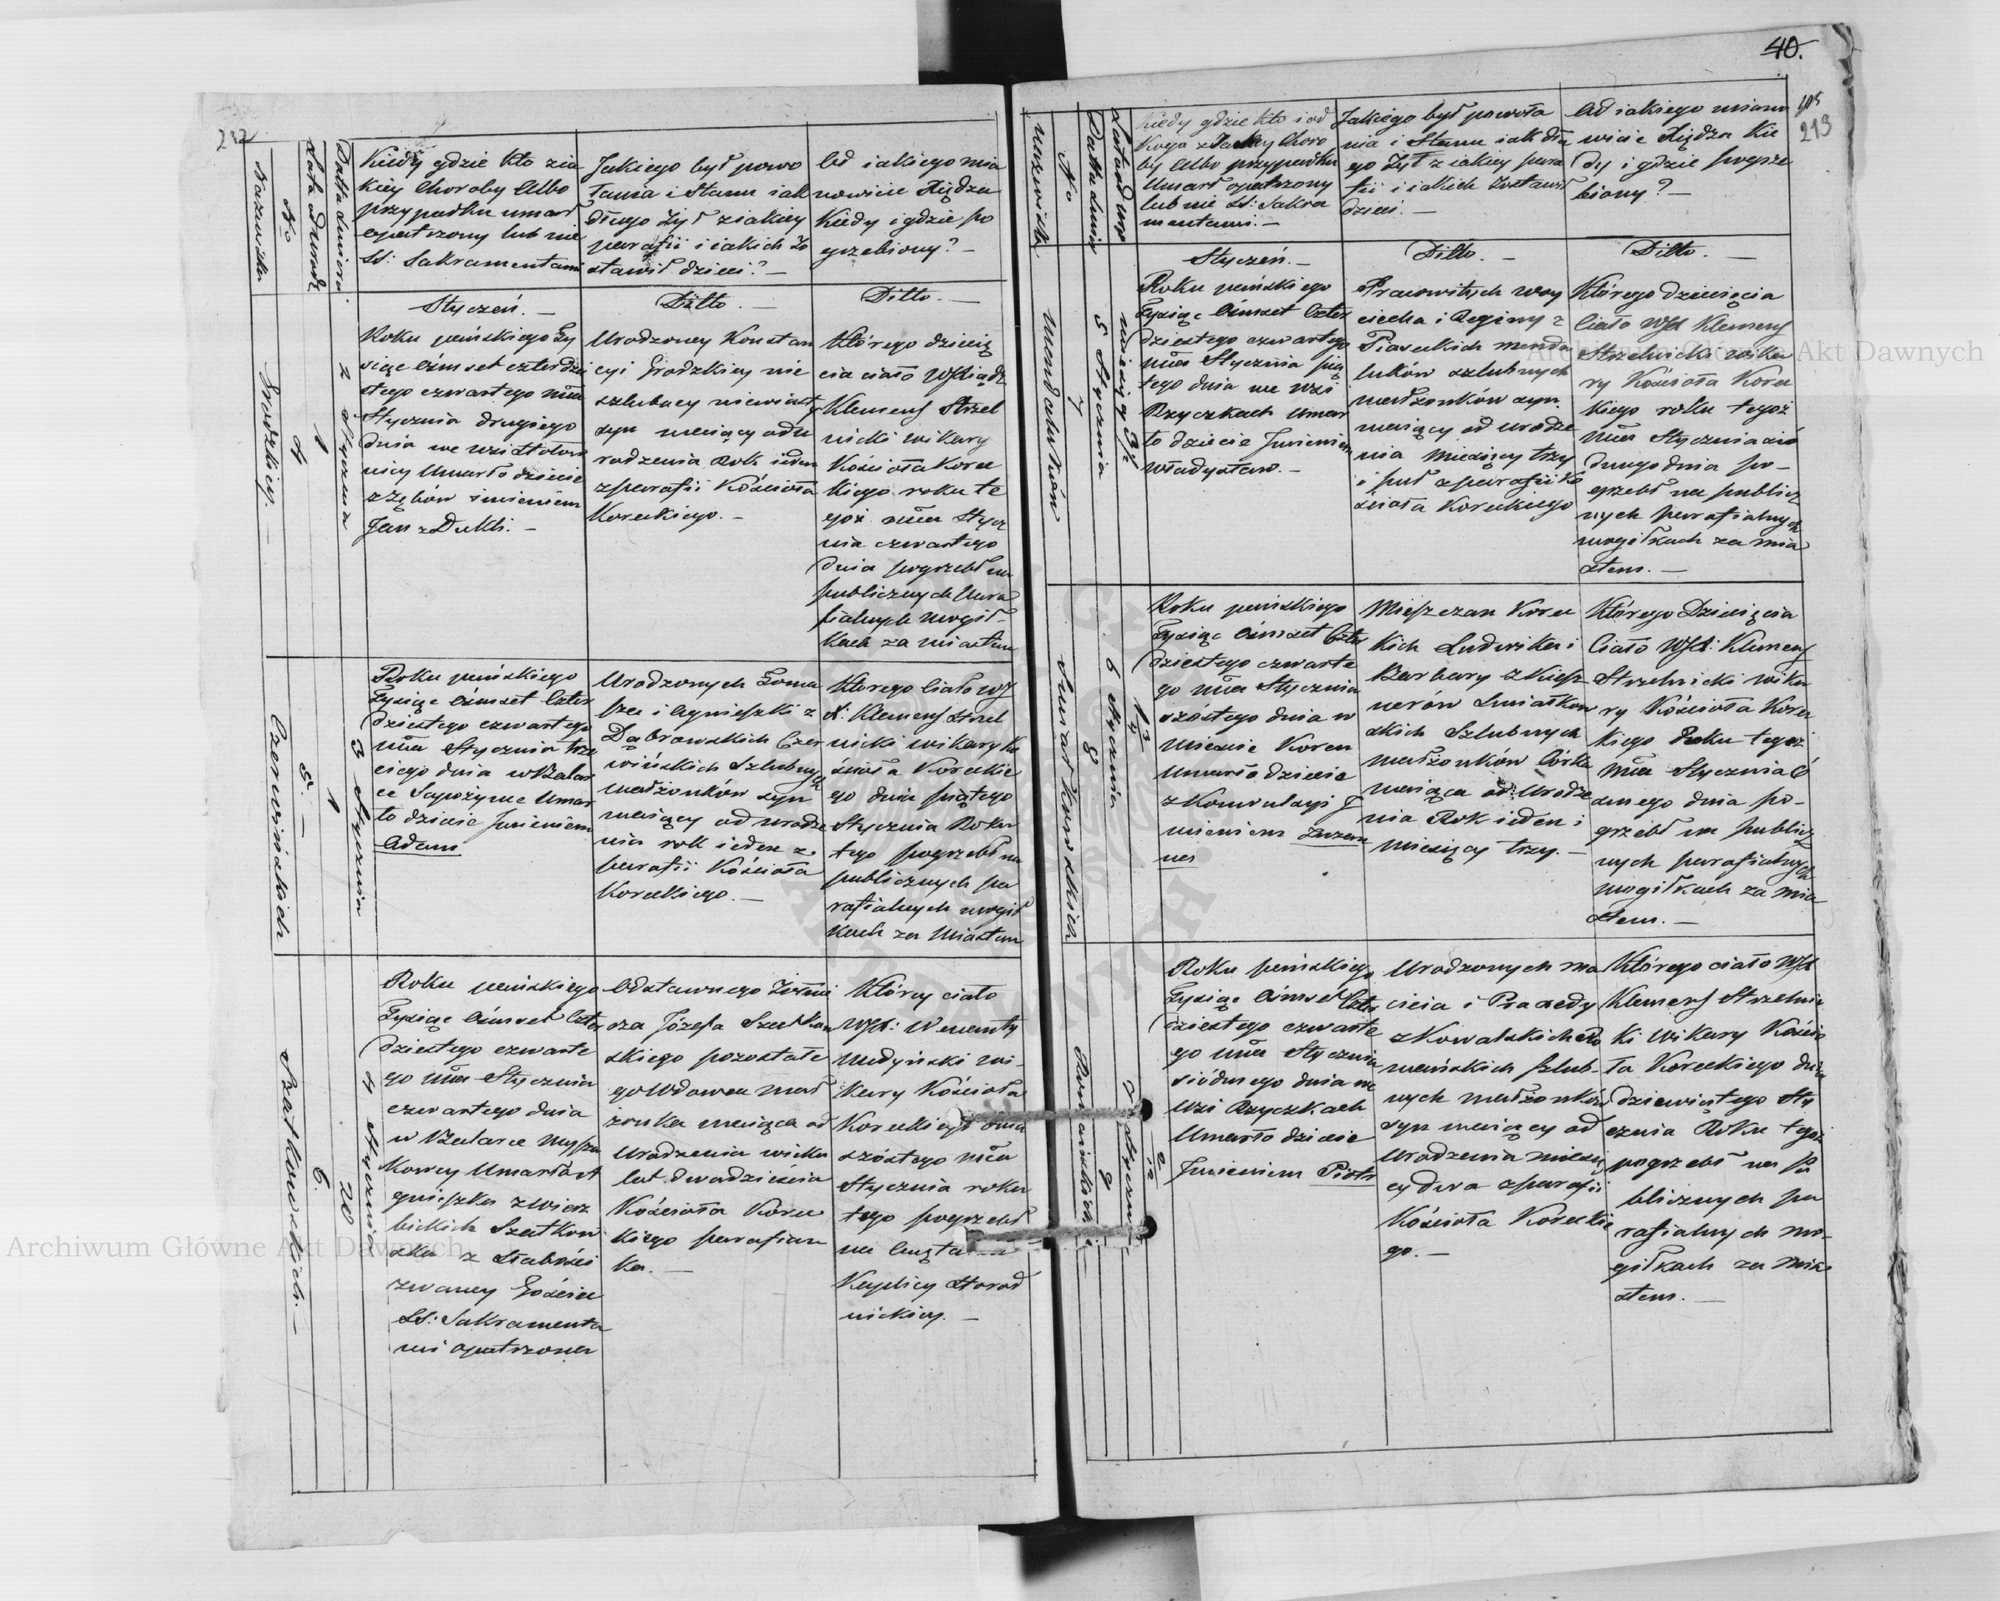 232
Nazwiska
No
Lata Umarł.
Datta Śmierci
Kiedy gdzie kto zia
kiey Choroby Albo
przypadku umarł
opatrzony lub nie
SS: Sakramentami
Jakiego był powo
łania i Stanu iak
długo Żył z iakiey
parafii i iakich Zo
stawił dzieci? —
Od iakiego mia
nowicie Xiędza
Kiedy i gdzie po
grzebiony? —
Styczeń. —
Ditto. —
Ditto. —
Grodzkiey. —
4
1
2 Stycznia
Roku pańskiego Ty
siąc Ośmset czterdzie
stego czwartego mca
Stycznia drugiego
dnia we wsi
umarło dziecie
z Zębow imieniem
Jan z Dukli. —
Urodzoney Konstan
cyi Grodzkiey nie
szlubney niewiasty
syn maiący od u
rodzenia Rok ieden
z parafii Kościoła
Koreckiego. —
Którego dziecię
cia ciało WJXiądz
Klemens Strzel
nicki wikary
Kościoła Korec
kiego roku te
goż mca Stycz
nia czwartego
dnia pogrzebł na
publicznych Para
fialnych mogił
kach za miastem
Czerwińskich
5. —
1
3 Stycznia
Roku pańskiego
Tysiąc Ośmset Czter
dziestego czwartego
mca Stycznia trze
ciego dnia w
umar
ło dziecie Imieniem
Adam
Urodzonych Toma
sza i Agnieszki z
Dąbrowskich Czer
wińskich Szlubnych
małżonków syn
maiący od urodze
nia rok ieden z
parafii Kościoła
Koreckiego. —
Ktorego Ciało WJ
X: Klemens Strzel
nicki wikary Ko
ścioła Koreckie
go dnia piątego
Stycznia Roku
tego pogrzebł na
publicznych pa
rafialnych mogił
kach za Miastem
Szatkowskich. —
6.
20
4 Stycznia
Roku pańskiego
Tysiąc Ośmset Czter
dziestego czwarte
go mca Stycznia
czwartego dnia
w
Umarła A
gnieszka z Wierz
bickich Szatkow
ska z Słabości
zwaney Gościec
SS: Sakramenta
mi opatrzona
Odstawnego Żołnie
rza Józefa Szatkow
skiego pozostałe
go Wdowca mał
żonka maiąca od
urodzenia wieku
lat dwadzieścia
Kościoła Korec
kiego parafian
ka. —
Którey ciało
WJX: Wincenty
Medyński wi-
kary Kościoła
Koreckiego dnia
szóstego mca
Stycznia roku
tego pogrzebł
na
Kaplicy Horod
nickiey. —
40.
213
Nazwiska
No
Datta Śmier
Lata od uro
Kiedy gdzie kto i od
Kogo z Iakiey Choro
by Albo przypadku
Umarł opatrzony
lub nie SS: Sakra
mentami. —
Jakiego był powoła
nia i Stanu iak dłu
go Żył z iakiey para
fii i iakich Zostawił
dzieci. —
Od iakiego miano
wicie Xiędza Kie
dy i gdzie pogrze
biony? —
Styczeń. —
Ditto. —
Ditto. —
Mendaluków
7
5 Stycznia
Roku pańskiego
Tysiąc Ośmset Czter
dziestego czwartego
mca Stycznia pią
tego dnia we wsi
Rzyczkach umar
ło dziecie Imieniem
Władysław. —
Pracowitych Woy
ciecha i Reginy z
Piaseckich Menda
luków szlubnych
małżonków syn
maiący od urodze
nia Miesięcy trzy
i puł z parafii Ko
ścioła Koreckiego
Którego dziecięcia
Ciało WJX Klemens
Strzelnicki wika
ry Kościoła Korec
kiego roku tegoż
mca Stycznia siód
dmego dnia po-
grzebł na publicz
nych parafialnych
mogiłkach za mia
stem. —
Smiałkowskich
8
6 Stycznia
Roku pańskiego
Tysiąc Ośmset Czter
dziestego czwarte
go mca Stycznia
szóstego dnia w
Mieście Korcu
umarło dziecie
z Konwulsyi J
mieniem Zuzan
na
Mieszczan Korec
kich Ludwika i
Barbary z Kiesz
nerów Smiałkow
skich Szlubnych
małżonków Córka
maiąca od Urodze
nia Rok ieden i
miesięcy trzy. —
Którego Dziecięcia
Ciało WJX: Klemens
Strzelnicki wika
ry Kościoła Korec
kiego Roku tegoż
mca Stycznia Ó
smego dnia po-
grzebł na publicz
nych parafialnych
mogiłkach za mia
stem. —
Romańskich
9
7 Stycznia
Roku pańskiego
Tysiąc Ośmset Czter
dziestego czwarte
go mca Stycznia
siódmego dnia we
wsi Rzyczkach
Umarło dziecie
Imieniem Piotr
Urodzonych Ma
cieia i Praxedy
z Kowalskich Ro
mańskich szlub-
nych małżonków
syn maiący od
urodzenia miesię
cy dwa z parafii
Kościoła Koreckie
go. —
Którego ciało WJX
Klemens Strzelnic
ki Wikary Kościo
ła Koreckiego dnia
dziewiątego Sty
cznia Roku tegoż
pogrzebł na Pu
blicznych pa
rafialnych mo-
giłkach za Mia
stem. —
Archiwum Główne Akt Dawnych
Archiwum Główne Akt Dawnych